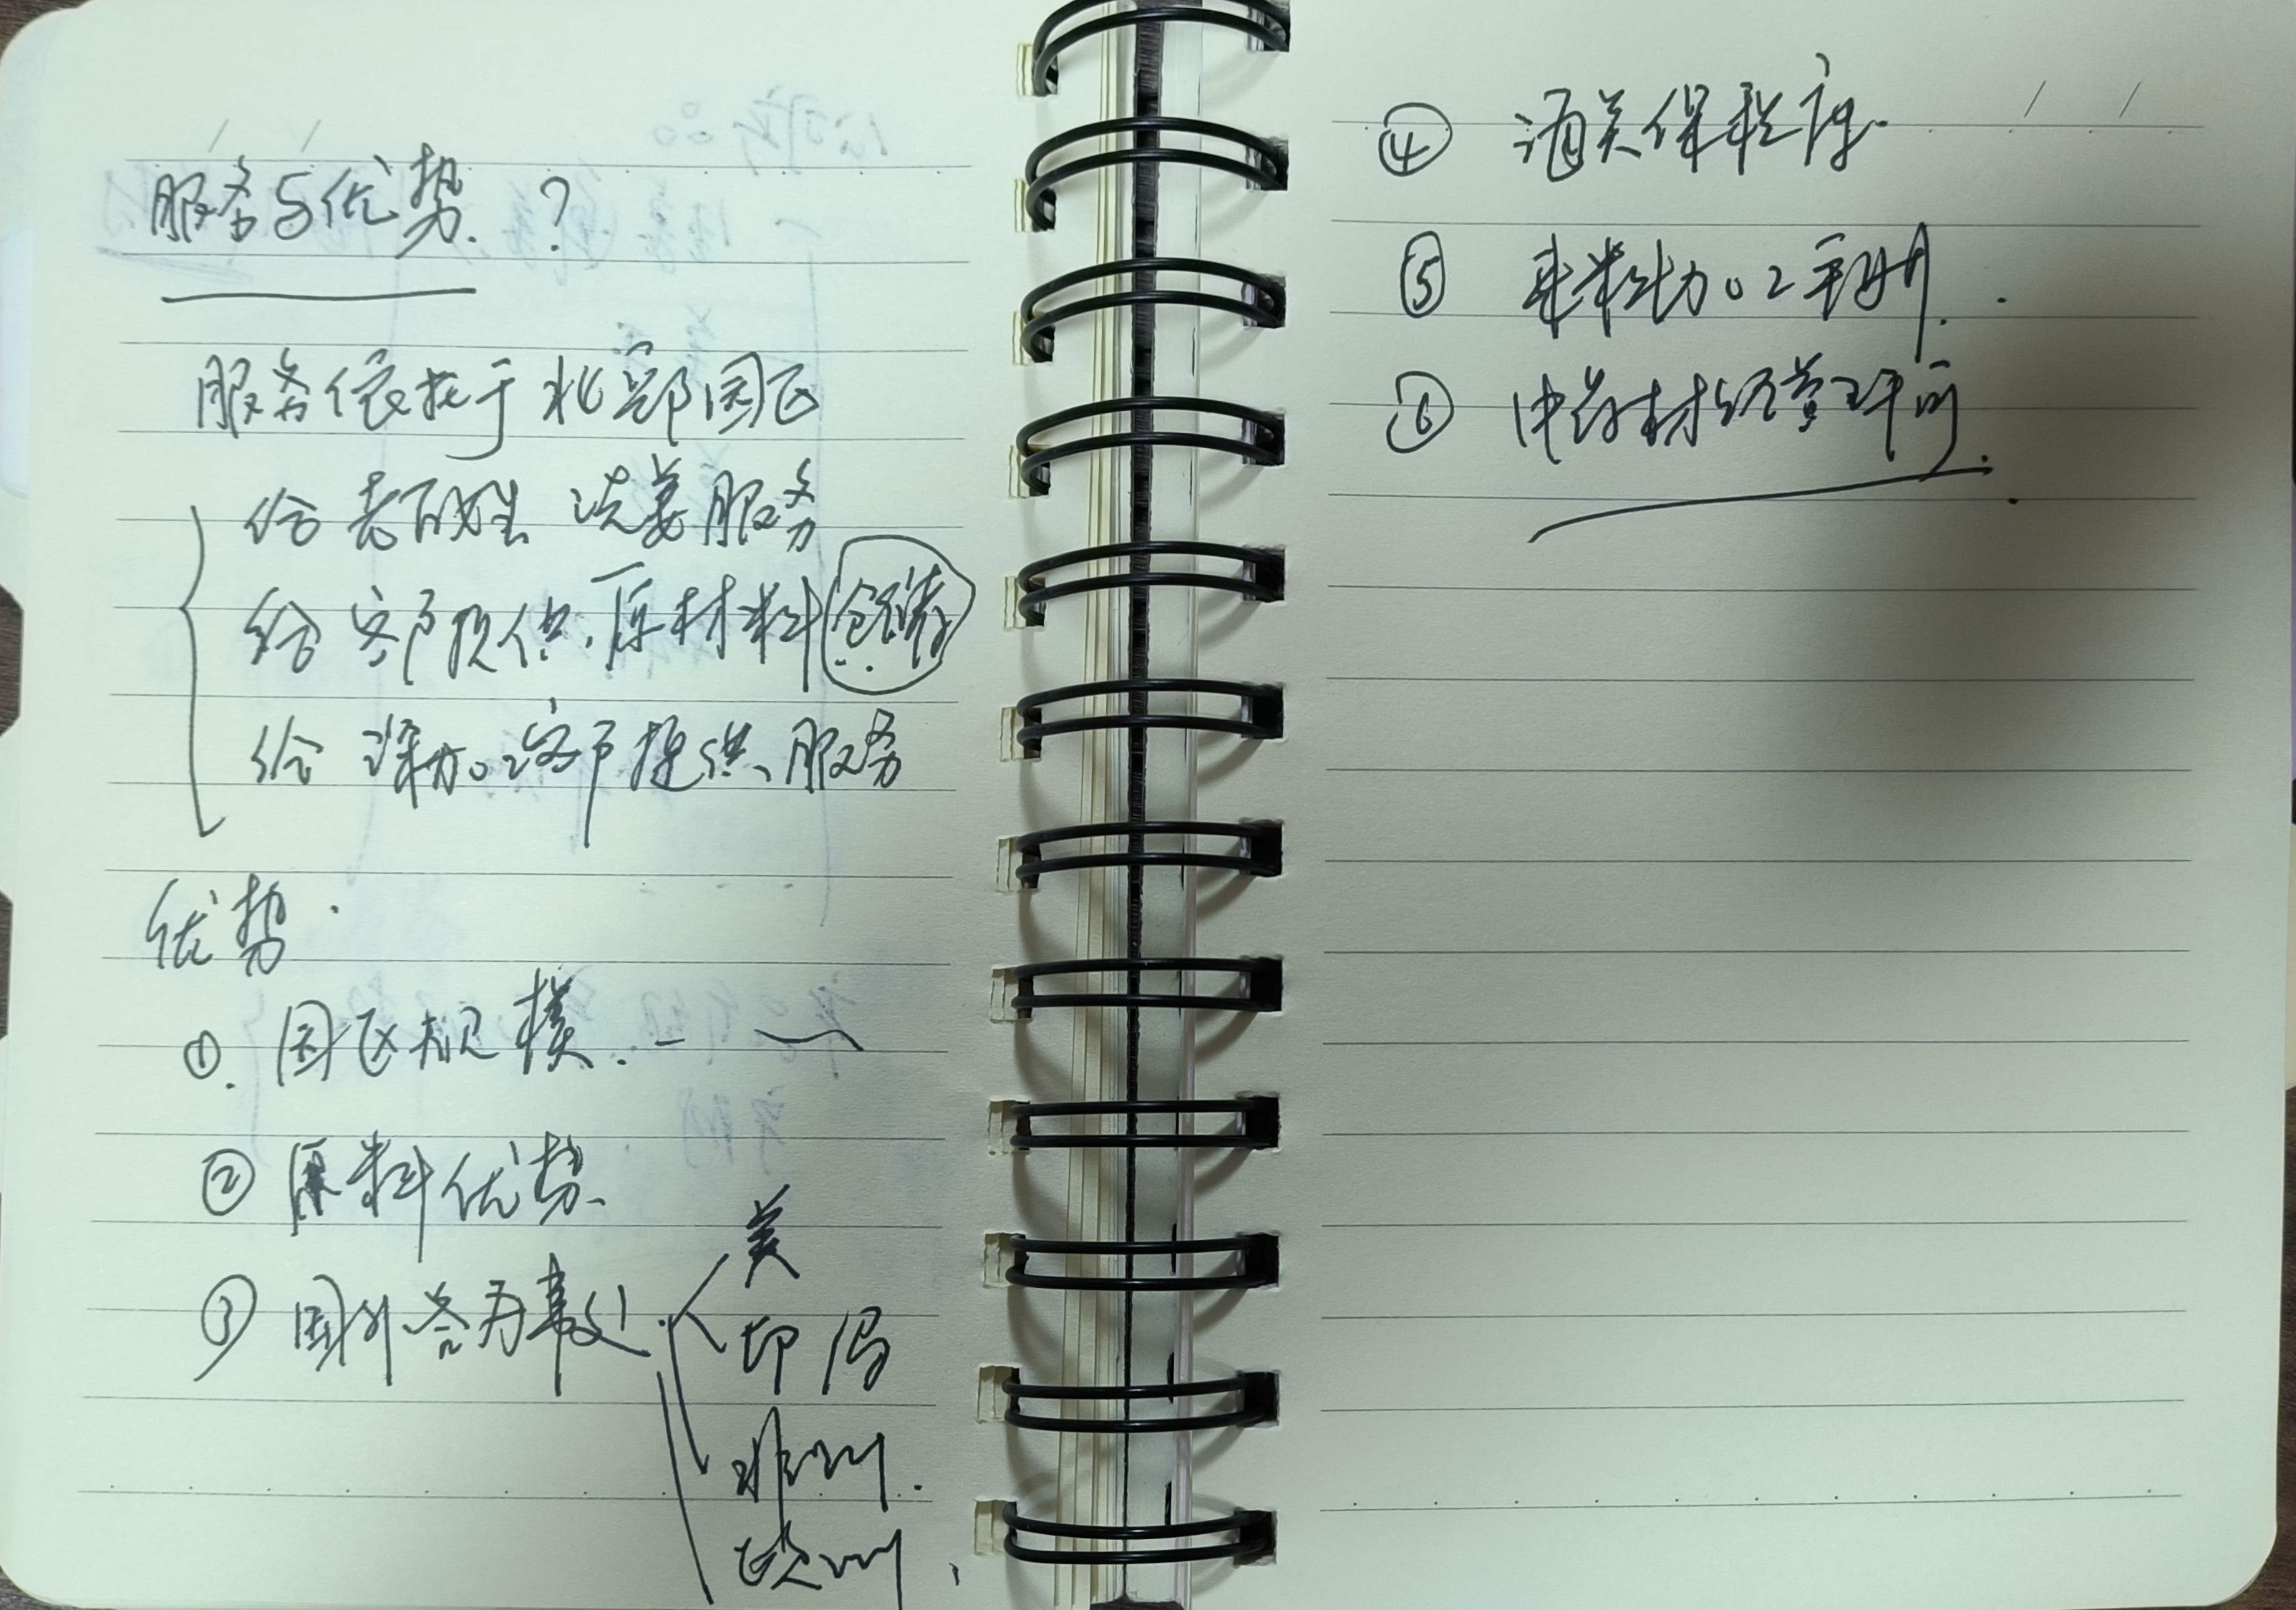 服务与优势?
服务依托于北部园区
给老百姓 洗姜服务
给客户提供、原材料仓储
给深加工客户提供、服务
优势.
①. 园区规模.
② 原料优势、
③ 国外各办事处.
美
印 尼
非洲.
欧洲、
④ 海关保税库.
⑤ 来料加工手册.
⑥ 中药材经营许可.